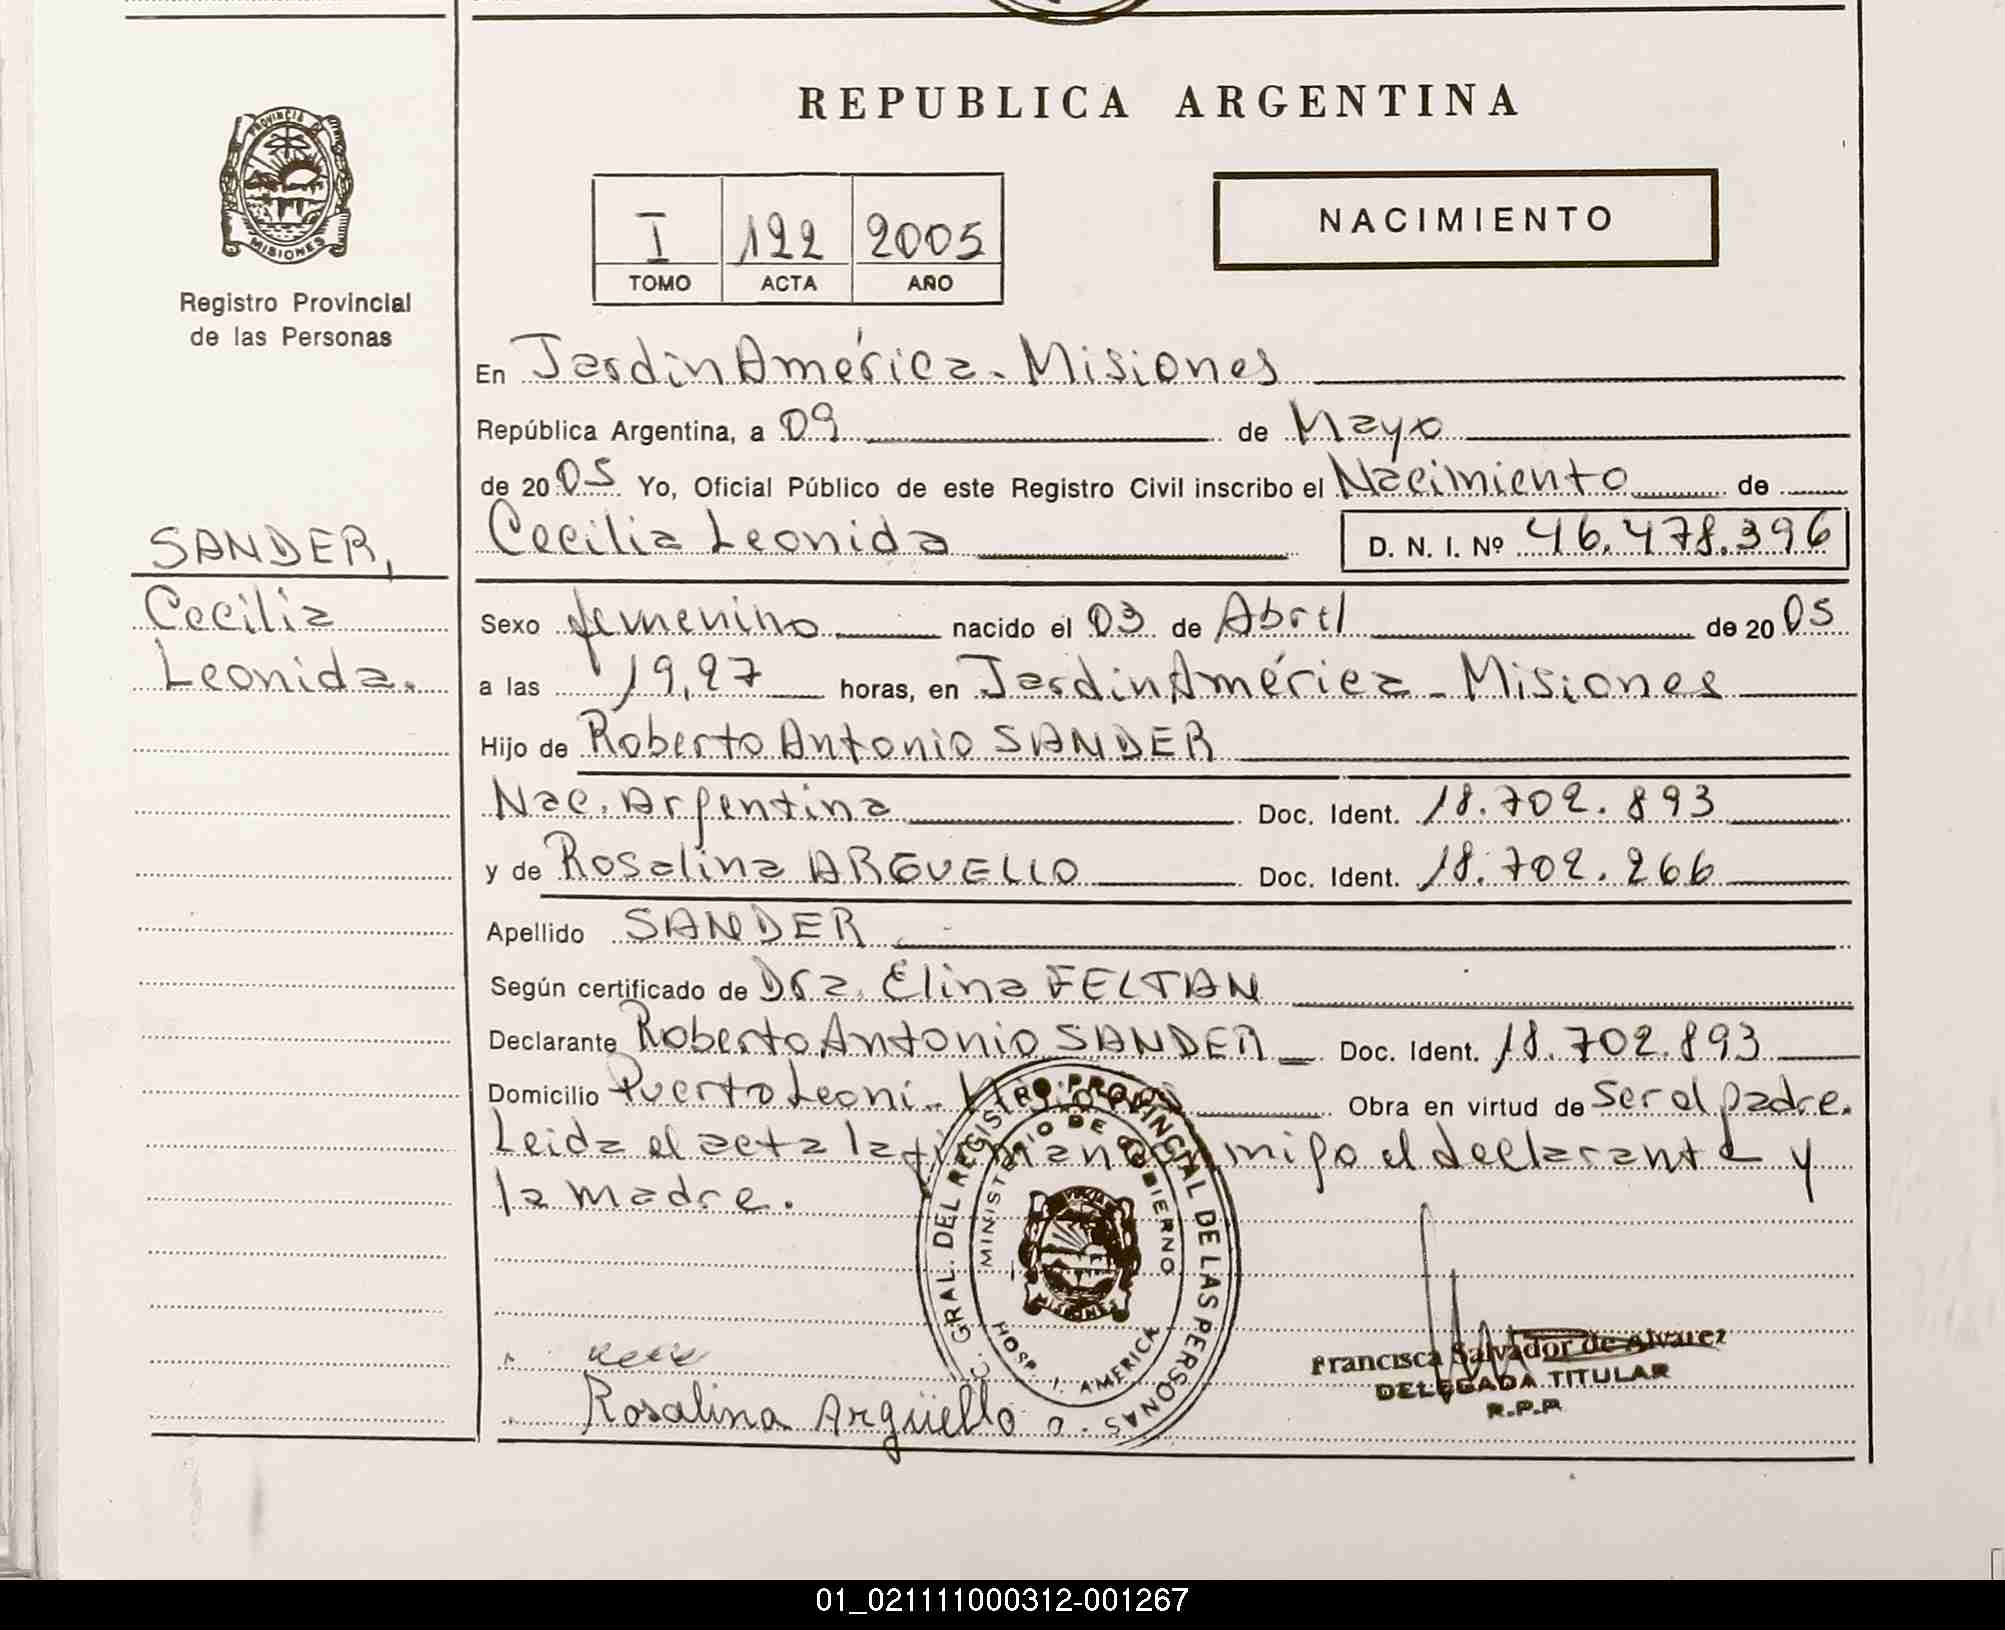 REPUBLICA ARGENTINA
PROVINCIA DE
MISIONES
Registro Provincial
de las Personas
I 122 2005
TOMO ACTA AÑO
NACIMIENTO
En Jardin América - Misiones
República Argentina, a 09 de Mayo
de 2005 Yo, Oficial Público de este Registro Civil inscribo el Nacimiento de
Cecilia Leonida D. N. I. Nº 46.478.396
SANDER,
Cecilia
Leonida.
Sexo femenino nacido el 03 de Abril de 2005
a las 19,27 horas, en Jardin América - Misiones
Hijo de Roberto Antonio SANDER
Nac. Argentina Doc. Ident. 18.702.893
y de Rosalina ARGUELLO Doc. Ident. 18.702.266
Apellido SANDER
Según certificado de Dra. Elina FELTAN
Declarante Roberto Antonio SANDER Doc. Ident. 18.702.893
Domicilio Puerto Leoni - Obra en virtud de ser el padre.
Leida el acta la firman conmigo el declarante y
la madre.
GRAL. DEL REGISTRO PROVINCIAL DE LAS PERSONAS
MINISTERIO DE GOBIERNO
MISIONES
HOSP. J. AMERICA
Rosalina Argüello
Francisca Salvador de Alvarez
DELEGADA TITULAR
R.P.P.
01_021111000312-001267